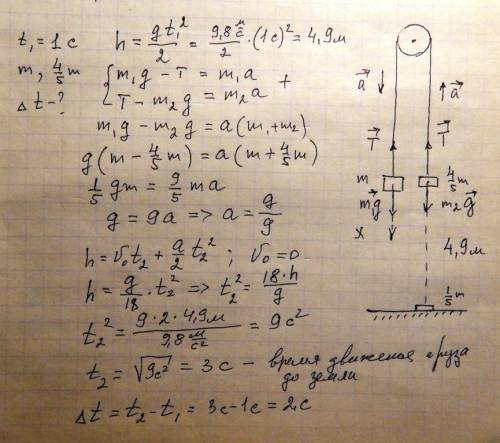 t₁ = 1 c
h = gt₁²/2 = 9,8 м/с²/2 · (1c)² = 4,9 м
m, 4/5 m
Δt - ?
{ m₁g - T = m₁a
T - m₂g = m₂a +
m₁g - m₂g = a(m₁ + m₂)
g(m - 4/5 m) = a(m + 4/5 m)
1/5 gm = 9/5 ma
g = 9a => a = g/9
h = v₀t₂ + a/2 t₂² ; v₀ = 0
h = g/18 · t₂² => t₂² = 18·h/g
t₂² = 9·2·4,9м / 9,8 м/с² = 9 c²
t₂ = √9c² = 3 c – время движения груза
до земли
Δt = t₂ - t₁ = 3c - 1c = 2c
a⃗
a⃗
T⃗
T⃗
m
4/5 m
mg⃗
m₂g⃗
x
4,9м
1/5 m